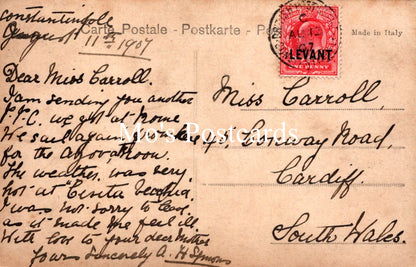 Constantinople
August 11th 1907
Carte Postale - Postkarte - Po
Made in Italy
LEVANT
ONE PENNY
Dear Miss Carroll.
I am sending you another
P.P.C. we got at Rome
We sail again
for the
The weather was very
hot at
I was not sorry to
as it made me feel ill
With love to your dear Mother
Yours Sincerely A. H Symons
Miss Carroll,
Road,
Cardiff
South Wales.
Mo's Postcards